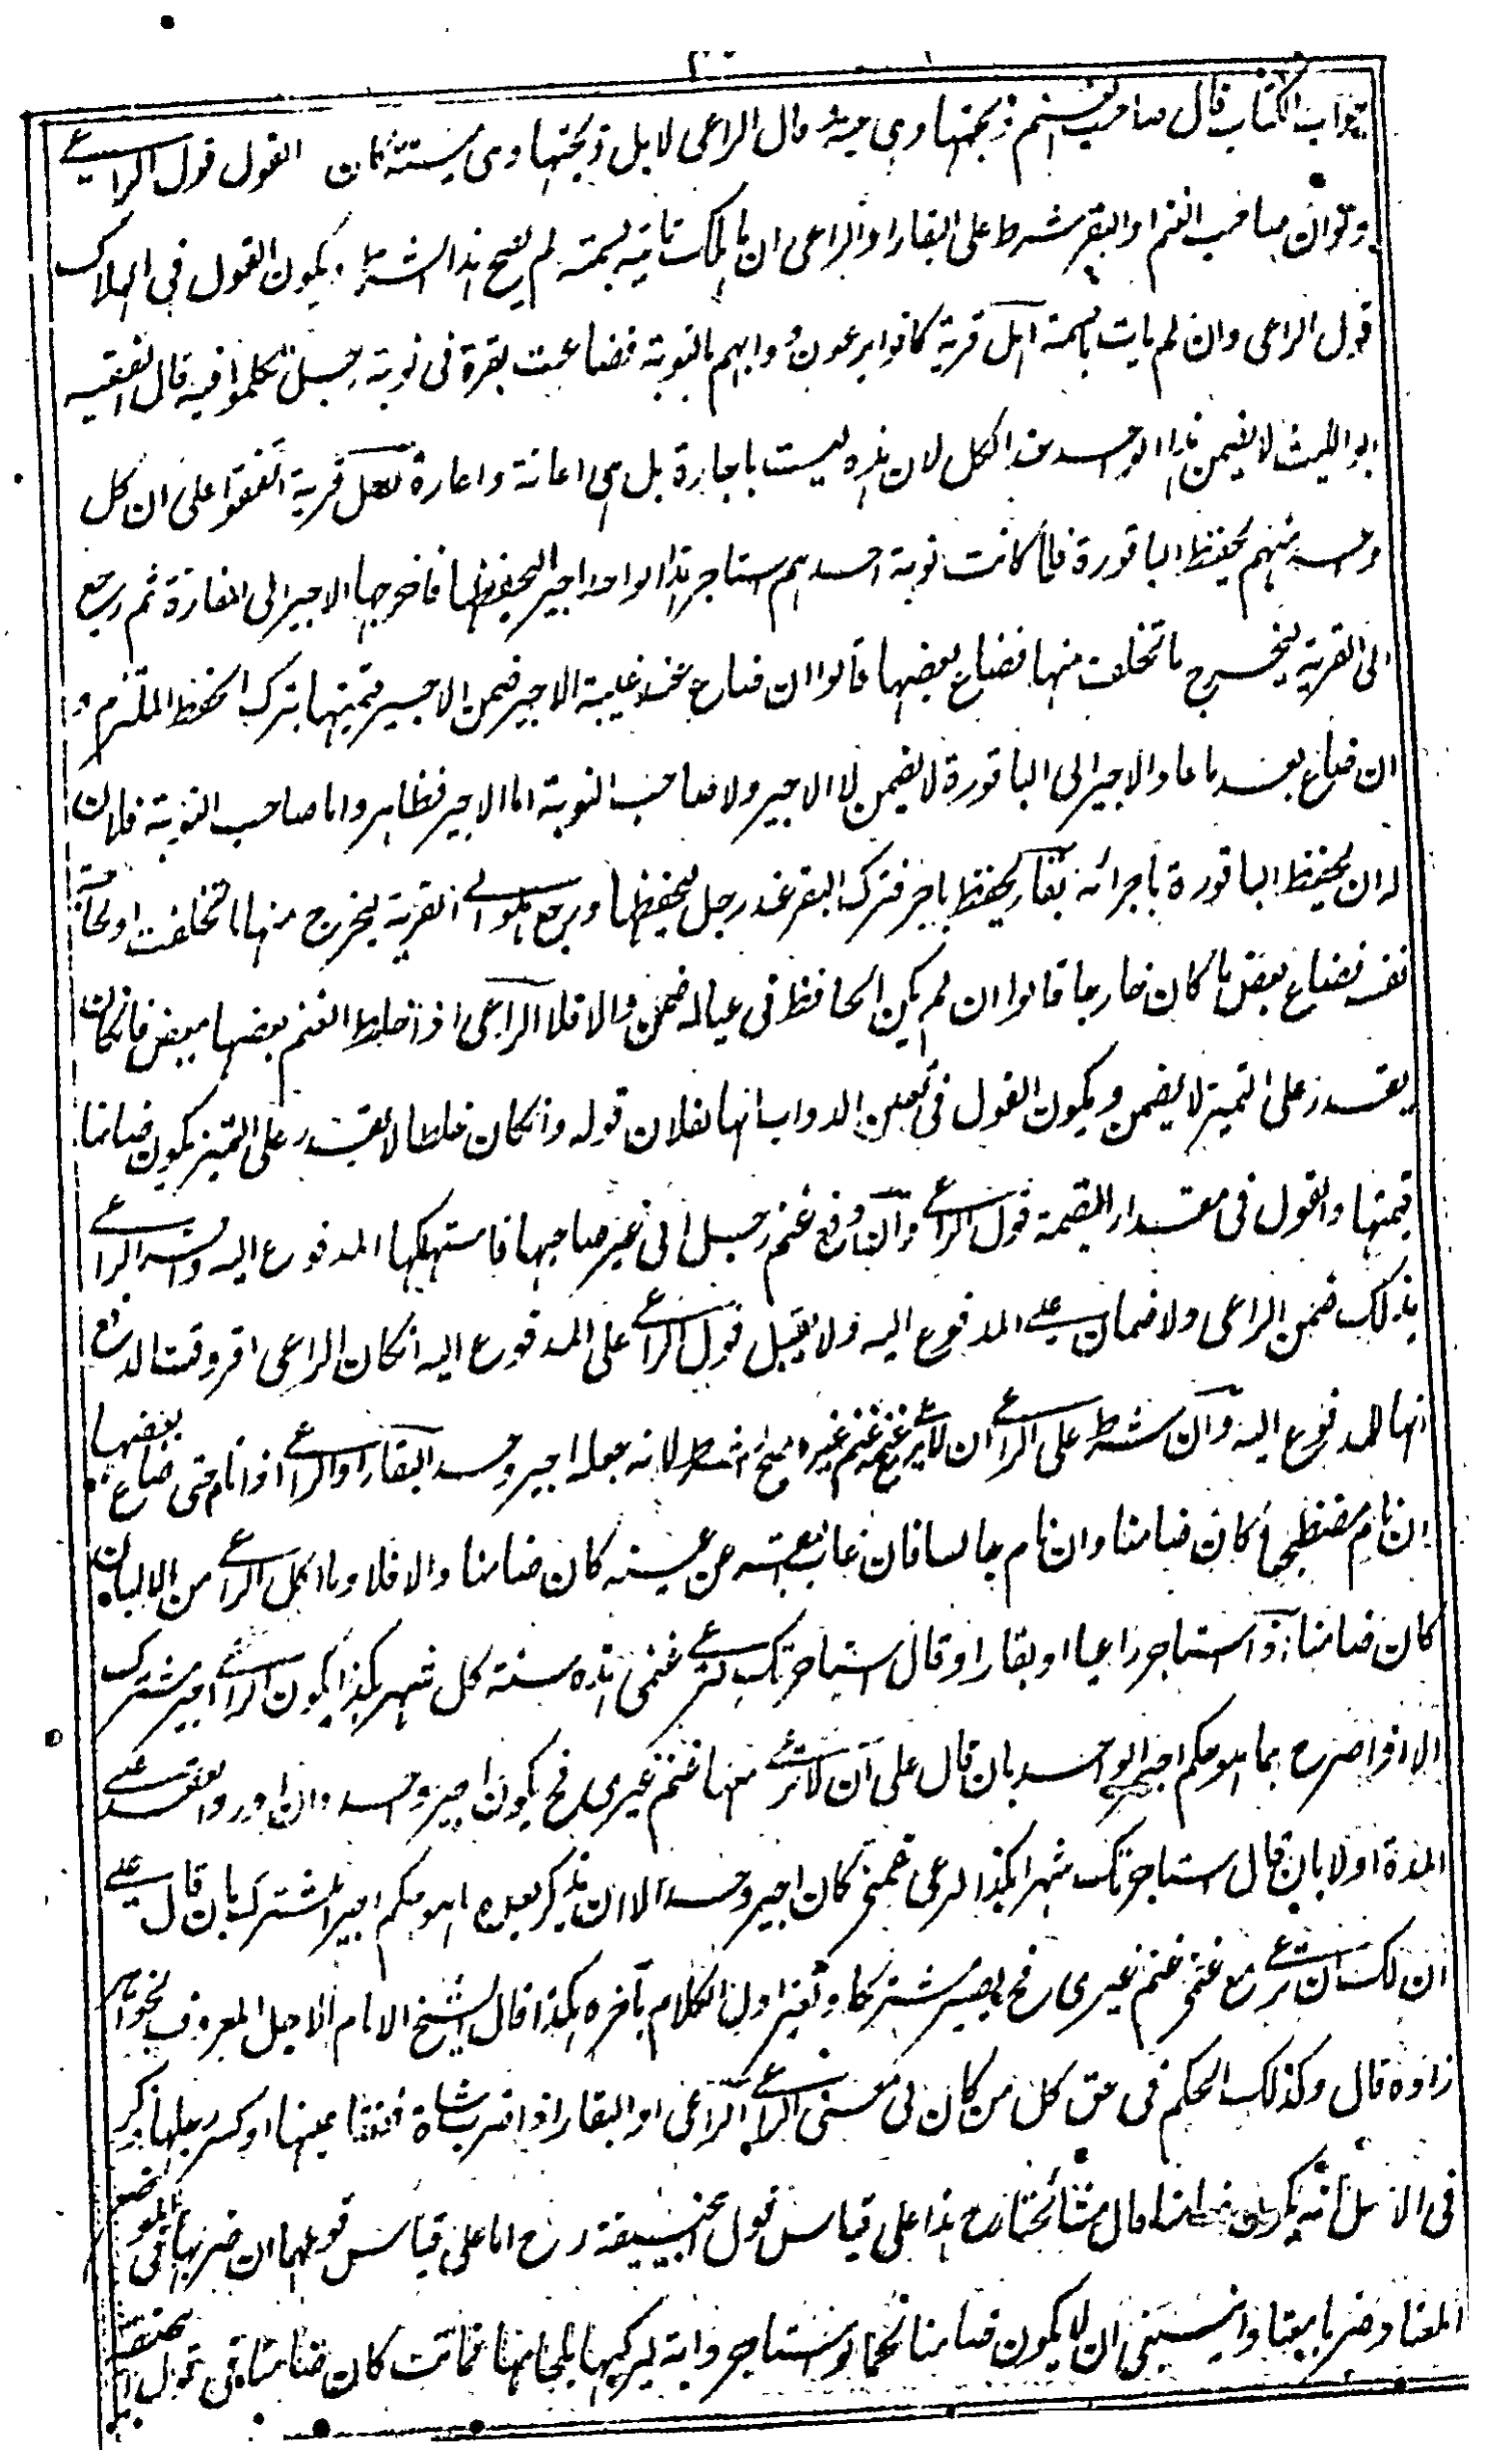 جواب الكتاب قال صاحب الغنم ذبحتها وهي حية وقال الراعي لا بل ذبحتها وهى ميتة كان القول قول الراعي
ولو ان صاحب الغنم او البقر شرط على البقار او الراعى ان ما هلك تاتيه بسمته لم يصح هذا الشرط ويكون القول في الهلاك
قول الراعى وان لم يات بالسمة اهل قرية كانوا يرعون دوابهم بالنوبة فضاعت بقرة فى نوبة رجل تكلموا فيه قال الفقيه
ابو الليث لا يضمن هذا الرجل عند الكل لان هذه ليست باجارة بل هى اعانة واعارة اهل قرية اتفقوا على ان كل
واحد منهم يحفظ الباقورة فلما كانت نوبة احدهم استاجر هذا الواحد اجيرا ليحفظها فاخرجها الاجير الى المفازة ثم رجع
الى القرية ليخرج ما تخلف منها فضاع بعضها قالوا ان ضاع عند غيبة الاجير ضمن الاجير قيمتها بترك الحفظ الملتزم و
ان ضاع بعد ما عاد الاجير الى الباقورة لا يضمن لا الاجير ولا صاحب النوبة اما الاجير فظاهر واما صاحب النوبة فلان
له ان يحفظ الباقورة باجرائه بقار يحفظ باجر فترك البقر عند رجل ليحفظها ويرجع هو الى القرية ليخرج منها ما تخلفت او لحاجة
نفسه فضاع بعض ما كان خارجا قالوا ان لم يكن الحافظ فى عياله ضمن والا فلا الراعى اذا خلط الغنم بعضها ببعض فانكان
يقدر على التميز لا يضمن ويكون القول فى تعيين الدواب انها لفلان قوله وانكان خلطا لا يقدر على التميز يكون ضامنا
قيمتها والقول فى مقدار القيمة قول الراعي وان دفع غنم رجل الى غير صاحبها فاستهلكها المدفوع اليه واقر الراعي
بذلك ضمن الراعى ولا ضمان على المدفوع اليه ولا يقبل قول الراعي على المدفوع اليه انكان الراعى اقر وقت الدفع
انها للمدفوع اليه وان شرط على الراعي ان لا يرعى مع غنمه غنم غيره صح الشرط لانه جعله اجير وحد البقار او الراعي اذا نام حتى ضاع بعضها
ان نام مضطجعا كان ضامنا وان نام جالسا فان غاب البقر عن عينه كان ضامنا والا فلا وما اكل الراعي من الالبان
كان ضامنا اذا استاجر راعيا او بقارا وقال استاجرتك لترعى غنمى هذه سنة كل شهر بكذا يكون الراعي اجير مشترك
الا اذا صرح بما هو حكم اجير الوحد بان قال على ان لا ترعى معها غنم غيرى فح يكون اجير وحد وان اورد العقد على
المدة اولا بان قال استاجرتك شهرا بكذا لرعى غنمى كان اجير وحد الا ان يذكر بعده ما هو حكم اجير المشترك بان قال على
ان لك ان ترعى مع غنمى غنم غيرى فح يصير مشتركا وتغير اول الكلام بآخره هكذا قال الشيخ الامام الاجل المعروف بخواهر
زاده قال وكذلك الحكم فى حق كل من كان فى معنى الراعي الراعى او البقار اذا ضرب شاة ففقا عينها او كسر رجلها ذكر
فى الاصل انه يكون ضامنا قال مشائخنا رح هذا على قياس قول ابيحنيفة رح اما على قياس قولهما ان ضربها فى الموضع
المعتاد ضربا معتادا ينبغى ان لا يكون ضامنا كما لو استاجر دابة ليركبها فكبحها فماتت كان ضامنا فى قول ابيحنيفة